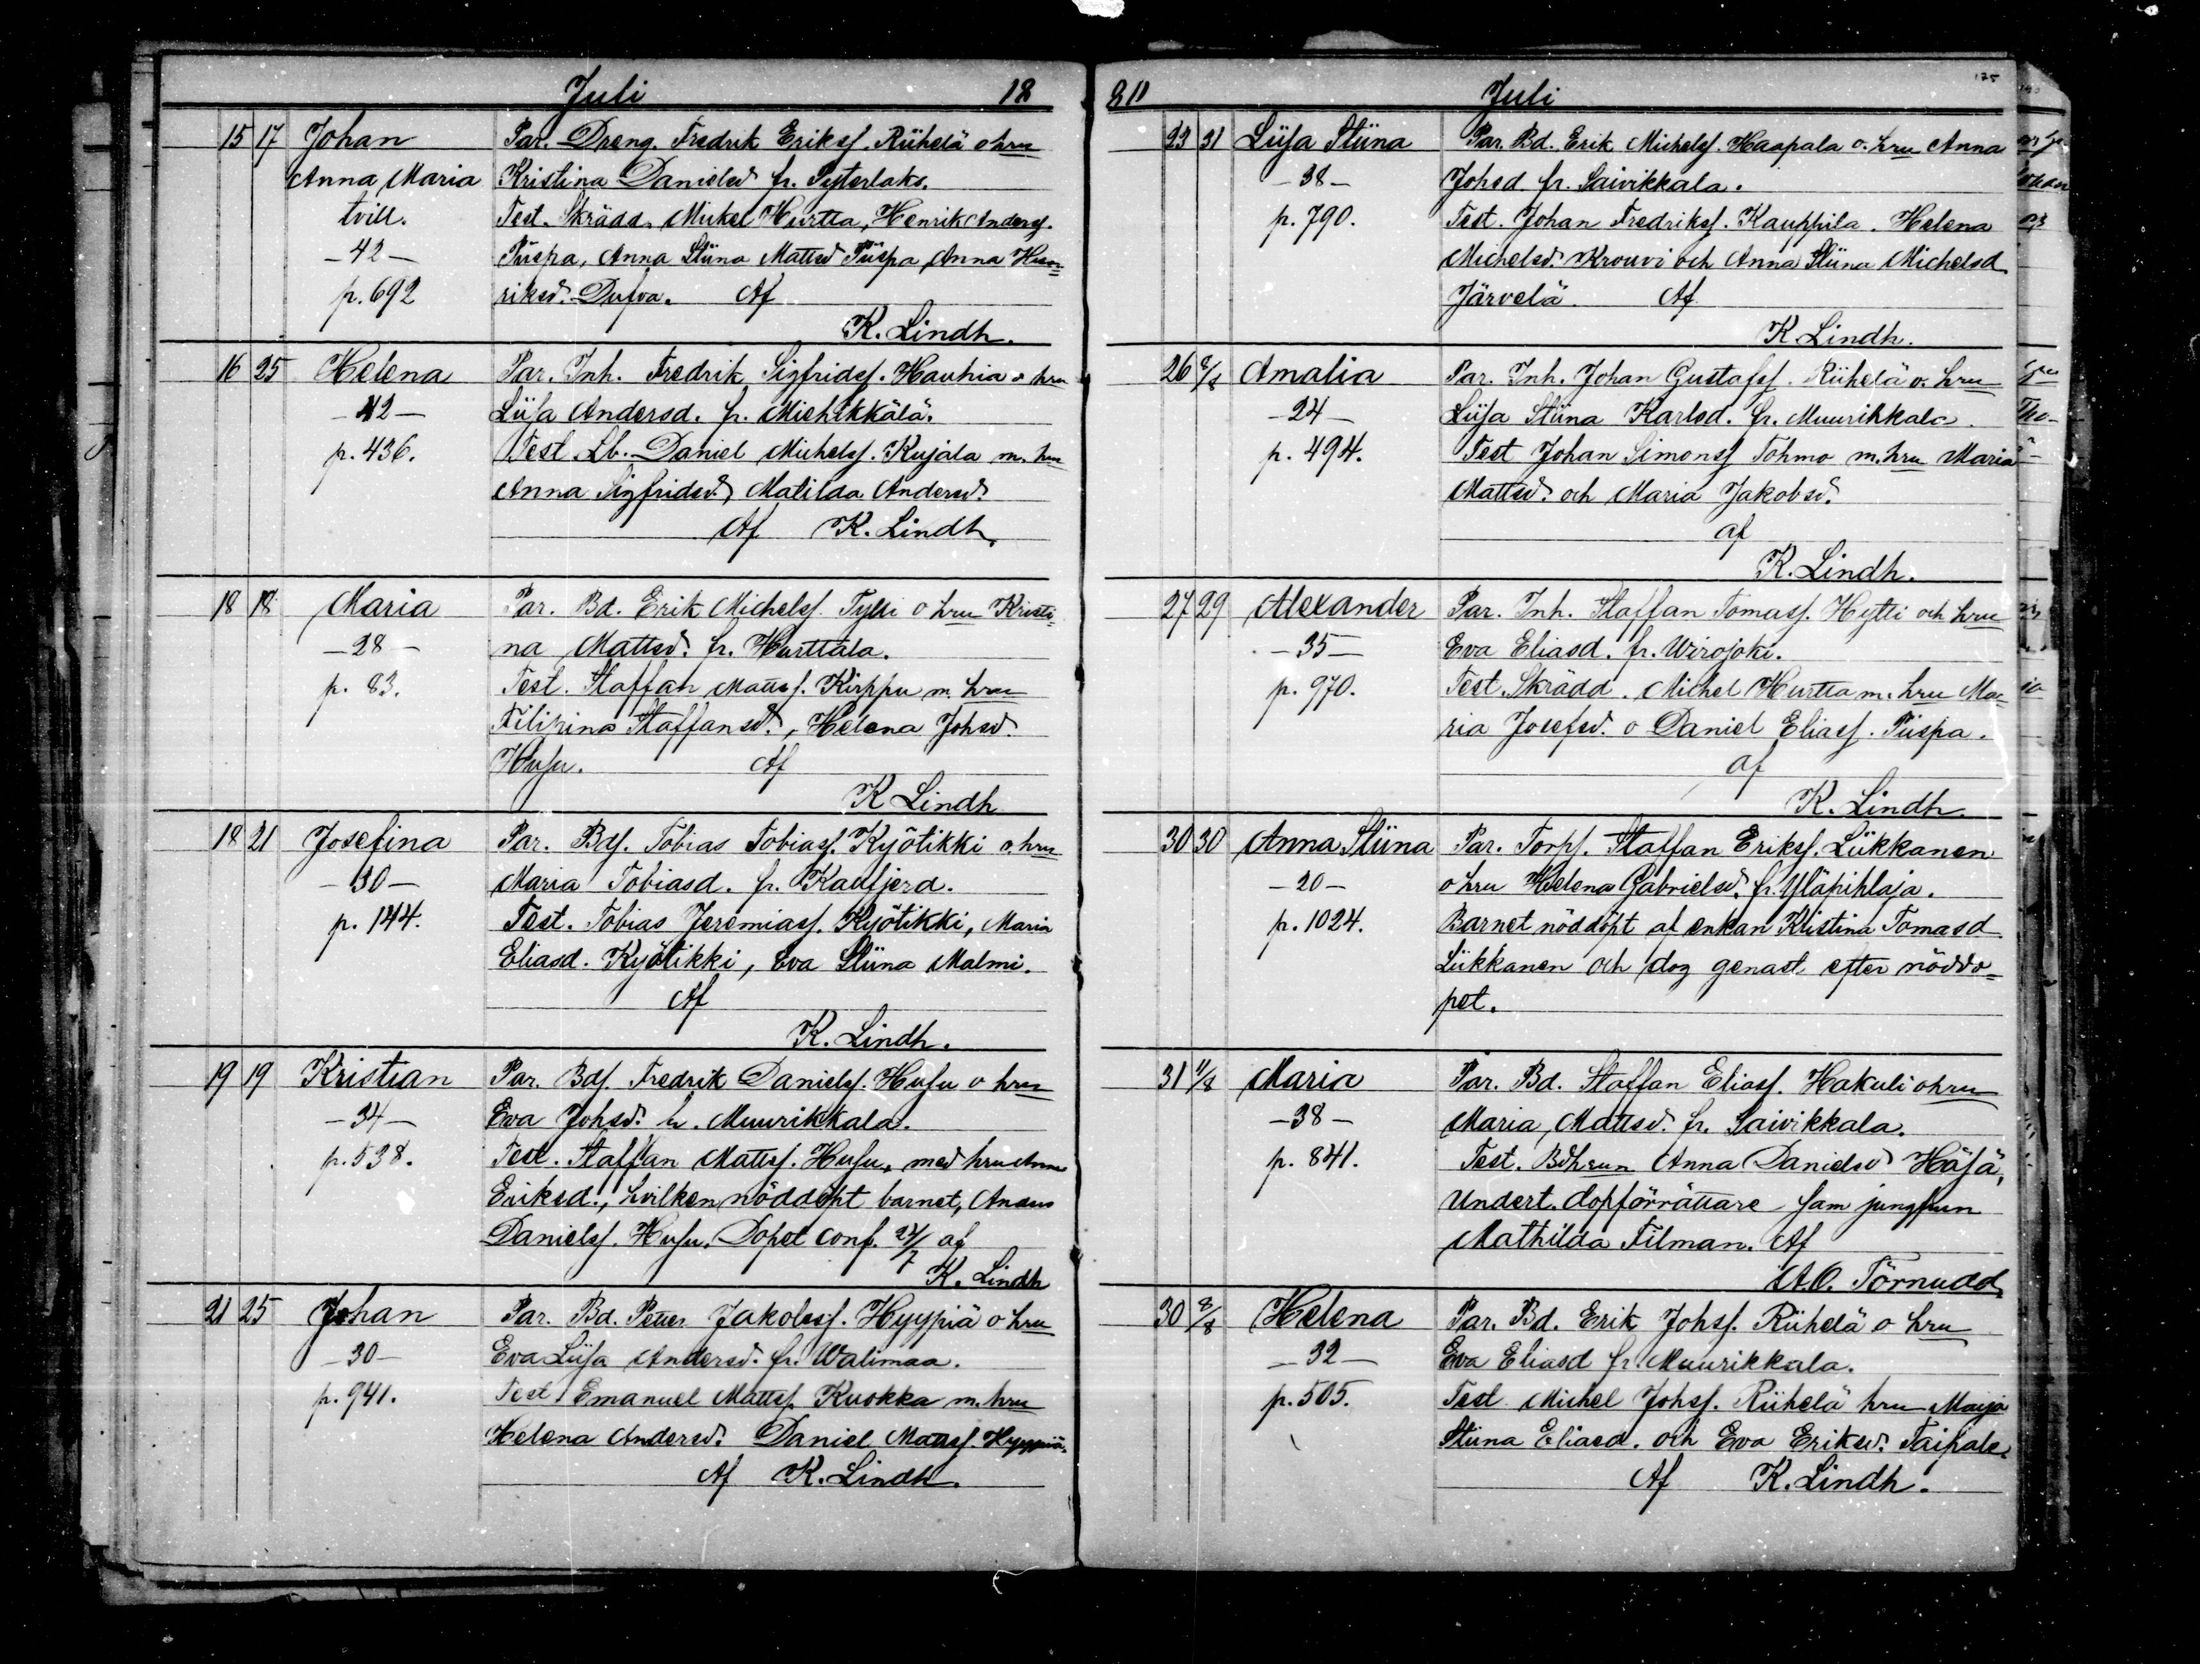 Juli 18
15 17 Johan Par. Dreng. Fredrik Eriksſ. Riihelä o hru
Anna Maria Kristina Danielsd. fr. Pyterlaks.
tvill. Test. Skrädd. Mickel Hurtta, Henrik Andersſ.
- 42 - Piispa, Anna Stiina Mattsd Piispa, Anna Hen=
p. 692 riksd. Dufva. Af
K. Lindh.
16 25 Helena Par. Inh. Fredrik Sigfridsſ. Hauhia o hru
- 42 - Liisa Andersd. fr. Miehikkälä.
p. 436. Test. Lb. Daniel Michelsſ. Kujala m. hru
Anna Sigfridsd., Matilda Andersd.
Af K. Lindh.
18 18 Maria Par. Bd. Erik Michelsſ. Tylli o hru Kristi-
- 28 - na Mattsd. fr. Hurttala.
p. 83. Test. Staffan Mattsſ. Kirppu m. hru
Filipina Staffansd., Helena Johsd.
Husu. Af
K Lindh
18 21 Josefina Par. Bdſ. Tobias Tobiasſ. Kyötikki o. hru
- 30 - Maria Tobiasd. fr. Kalfjerd.
p. 144. Test. Tobias Jeremiasſ. Kyötikki, Maria
Eliasd. Kyötikki, Eva Stiina Malmi.
Af
K. Lindh.
19 19 Kristian Par. Bdſ. Fredrik Danielsſ. Husu o hru
- 34 - Eva Johsd. fr. Muurikkala.
p. 538. Test. Staffan Mattsſ. Husu, med hru Anna
Eriksd., hvilken nöddöpt barnet, Anders
Danielsſ. Husu. Dopet conf. 24/7 af
K. Lindh
21 25 Johan Par. Bd. Petter Jakobsſ. Hyypiä o hru
- 30 - Eva Liisa Andersd. fr. Walimaa.
p. 941. Test Emanuel Mattsſ. Kuokka m. hru
Helena Andersd. Daniel Mattsſ. Hyypiä.
Af K. Lindh.
Juli
125
23 31 Liisa Stiina Par. Bd. Erik Michelsſ. Haapala o. hru Anna
- 38 - Johsd fr. Saivikkala.
p. 790. Test. Johan Fredriksſ. Kauppila. Helena
Michelsd. Krouvi och Anna Stiina Michelsd.
Järvelä Af
K. Lindh.
26 8/8 Amalia Par. Inh. Johan Gustafsſ. Riihelä o. hru
- 24 - Liisa Stiina Karlsd. fr. Muurikkala.
p. 494. Test Johan Simonsſ Tohmo m. hru Maria
Mattsd. och Maria Jakobsd.
af
K. Lindh.
27 29 Alexander Par. Inh. Staffan Tomasſ. Hytti och hru
- 35 - Eva Eliasd. fr. Wirojoki.
p. 970. Test. Skrädd. Michel Hurtta m. hru Ma=
ria Josefsd. o Daniel Eliasſ. Piispa.
af
K. Lindh.
30 30 Anna Stiina Par. Torpſ. Staffan Eriksſ. Liikkanen
- 20 - o hru Helena Gabrielsd. fr. Yläpihlaja.
p. 1024. Barnet nöddöpt af enkan Kristina Tomasd
Liikkanen och dog genast efter nöddo=
pet.
31 11/8 Maria Par. Bd. Staffan Eliasſ. Hakuli o hru
- 38 - Maria Mattsd. fr. Saivikkala.
p. 841. Test. Bdhrun Anna Danielsd Häsä,
Undert. dopförrättare sam jungfrun
Mathilda Filman. Af
A.O. Törnudd.
30 8/8 Helena Par. Bd. Erik Johsſ. Riihelä o hru
- 32 - Eva Eliasd fr. Muurikkala.
p. 505. Test Michel Johsſ. Riihelä hru Maija
Stiina Eliasd. och Eva Eriksd. Taipale.
Af K. Lindh.